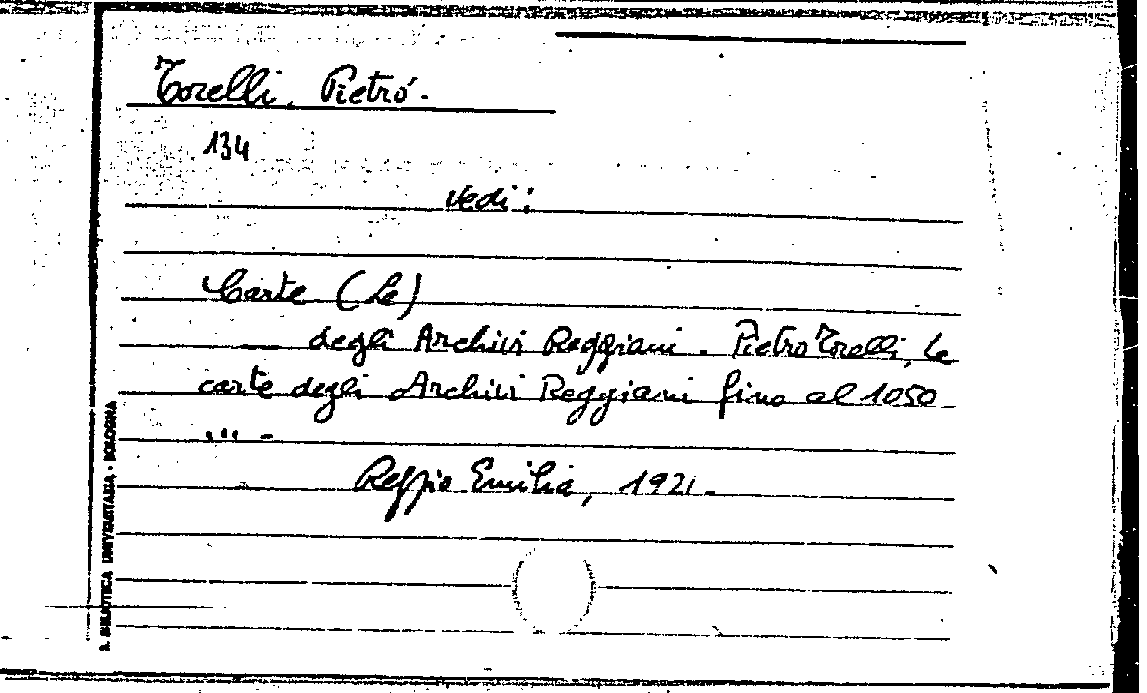 Torelli, Pietro.
134
vedi:
Carte (Le)
— degli Archivi Reggiani. Pietro Torelli, Le
carte degli Archivi Reggiani fino al 1050
... -
Reggio Emilia, 1921.
B. BIBLIOTECA UNIVERSITARIA - BOLOGNA